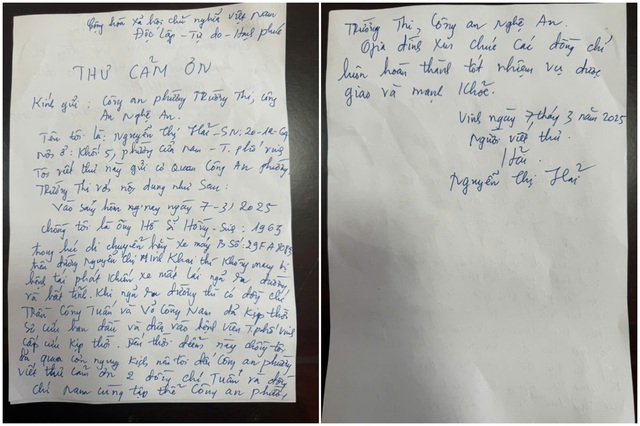 Cộng hòa xã hội chủ nghĩa việt Nam
Độc lập - Tự do - Hạnh phúc
THƯ CẢM ƠN
Kính gửi : Công an phường Trường Thi, Công
An Nghệ An.
Tên tôi là: Nguyễn Thị Hải - SN: 20-12-69
Nơi ở: Khối 5, phường cửa nam - T. phố vinh
Tôi viết thư này gửi cơ Quan Công An phường
Trường Thi với nội dung như Sau:
Vào sáng hôm nay ngày 7-3/2025
chồng tôi là ông Hồ Sĩ Hồng - Sinh: 1963
trong lúc di chuyển bằng xe máy B Số: 29FA
trên đường Nguyễn Thị Minh Khai thì Không may bị
bệnh tái phát Khiến xe mất lái ngã ra đường
và bất tỉnh. Khi ngã ra đường thì có đồng chí
Trần Công Tuấn và Võ Công Nam đã Kịp thời
Sơ cứu ban đầu và đưa vào bệnh viện T.phố vinh
cấp cứu Kịp thời. Đến thời điểm này chồng tôi
đã qua cơn nguy Kịch, nên tôi đến Công an phường
viết thư cảm ơn 2 đồng chí Tuấn và đồng
chí Nam cùng tập thể Công an phường
Trường Thi, Công an Nghệ An.
Gia đình Xin chúc Các đồng chí
luôn hoàn thành tốt nhiệm vụ được
giao và mạnh Khỏe.
Vinh ngày 7 tháng 3 năm 2025
Người viết thư
Hải
Nguyễn Thị Hải